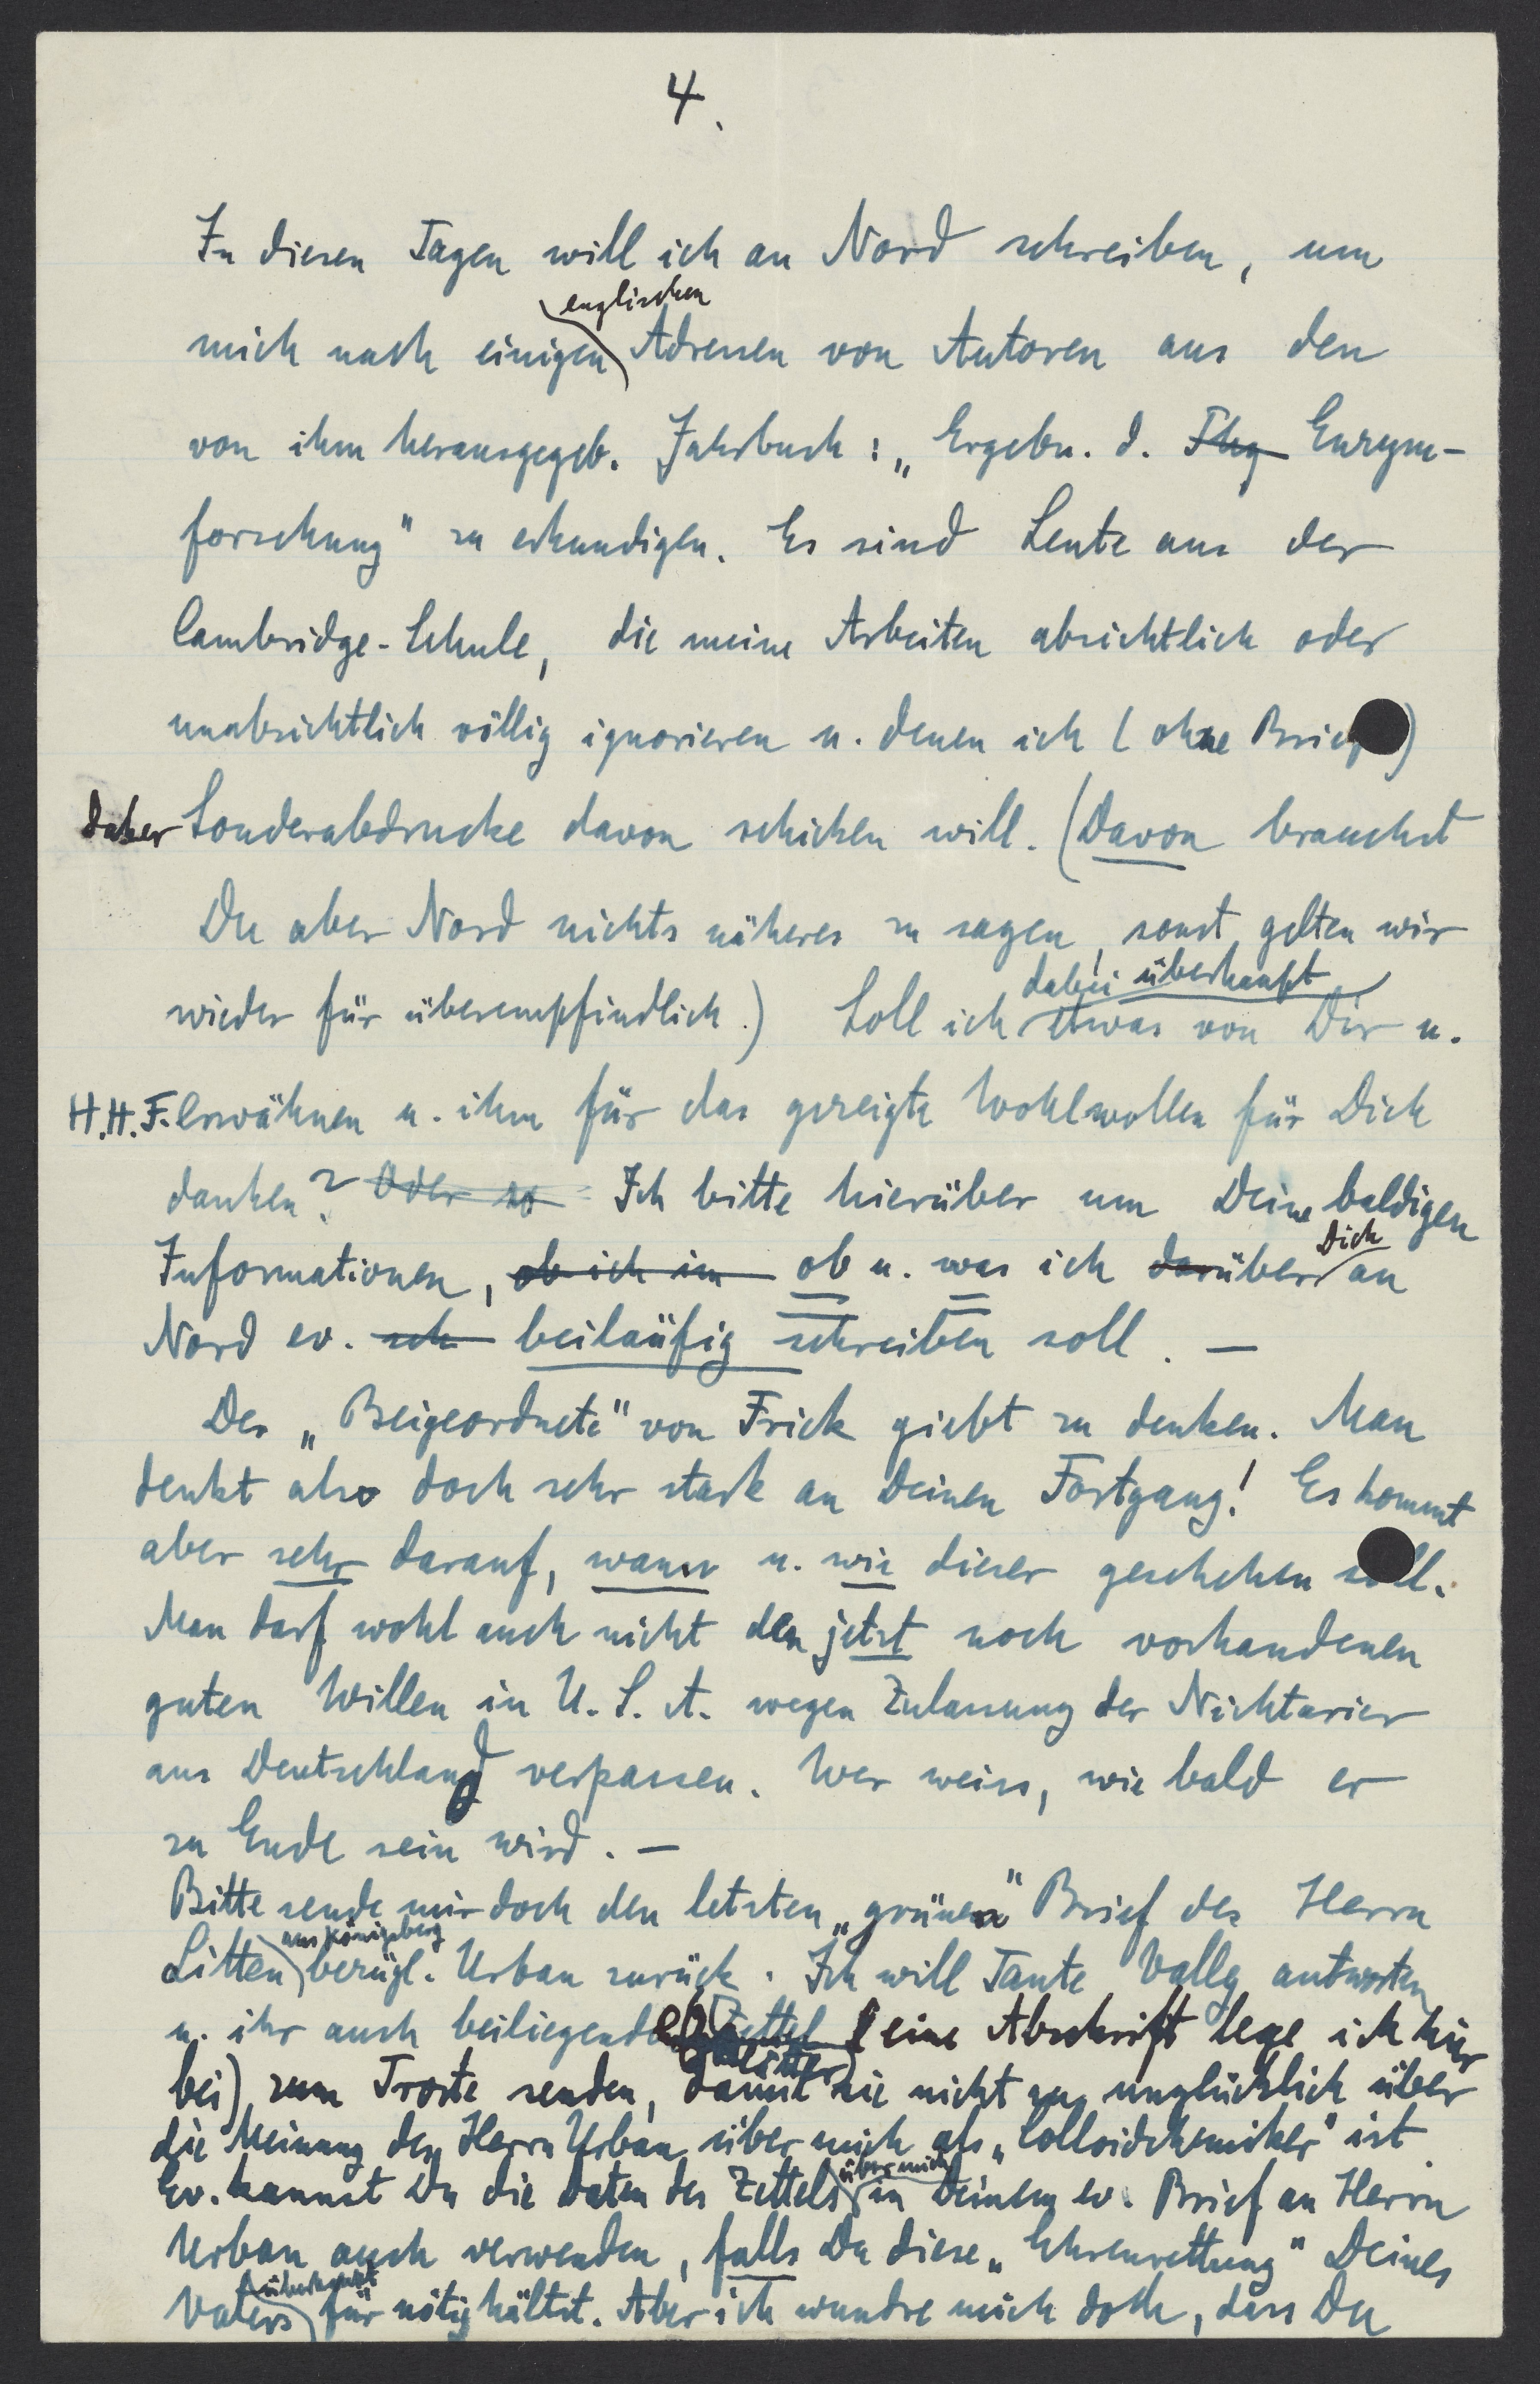 4.
In diesen Tagen will ich an Nord schreiben, um
mich nach einigen englischen Adressen von Autoren aus den
von ihm herausgegeb. Jahrbuch: „Ergebn. d. Enzym-
forschung" zu erkundigen. Es sind Leute aus der
Cambridge-Schule, die meine Arbeiten absichtlich oder
unabsichtlich völlig ignorieren u. denen ich (ohne Brief)
daher Sonderabdrucke davon schicken will. (Davon brauchst
Du aber Nord nichts näheres zu sagen, sonst gelten wir
wieder für überempfindlich.) Soll ich dabei überhaupt etwas von Dir u.
H.H.F. erwähnen u. ihm für das gezeigte Wohlwollen für Dich
danken? Oder so Ich bitte hierüber um Deine baldigen
Informationen, ob ich im ob u. was ich darüber Dich an
Nord ev. sch beiläufig schreiben soll. —
Der „Beigeordnete" von Frick giebt zu denken. Man
denkt also doch sehr stark an Deinen Fortgang! Es kommt
aber sehr darauf, wann u. wie dieser geschehen soll.
Man darf wohl auch nicht den jetzt noch vorhandenen
guten Willen in U.S.A. wegen Zulassung der Nichtarier
aus Deutschland verpassen. Wer weiss, wie bald er
zu Ende sein wird. —
Bitte sende mir doch den letzten „grünen" Brief des Herrn
Litten aus Königsberg bezügl. Urban zurück. Ich will Tante Vally antworten
u. ihr auch beiliegenden Zettel (eine Abschrift lege ich hier
bei) zum Troste senden, damit sie nicht zu unglücklich über
die Meinung des Herrn Urban über mich als „Colloidchemiker" ist.
Ev. kannst Du die Daten des Zettels über mich in Deinem ev. Brief an Herrn
Urban auch verwenden, falls Du diese „Ehrenrettung" Deines
Vaters überhaupt für nötig hältst. Aber ich wundre mich doch, dass Du